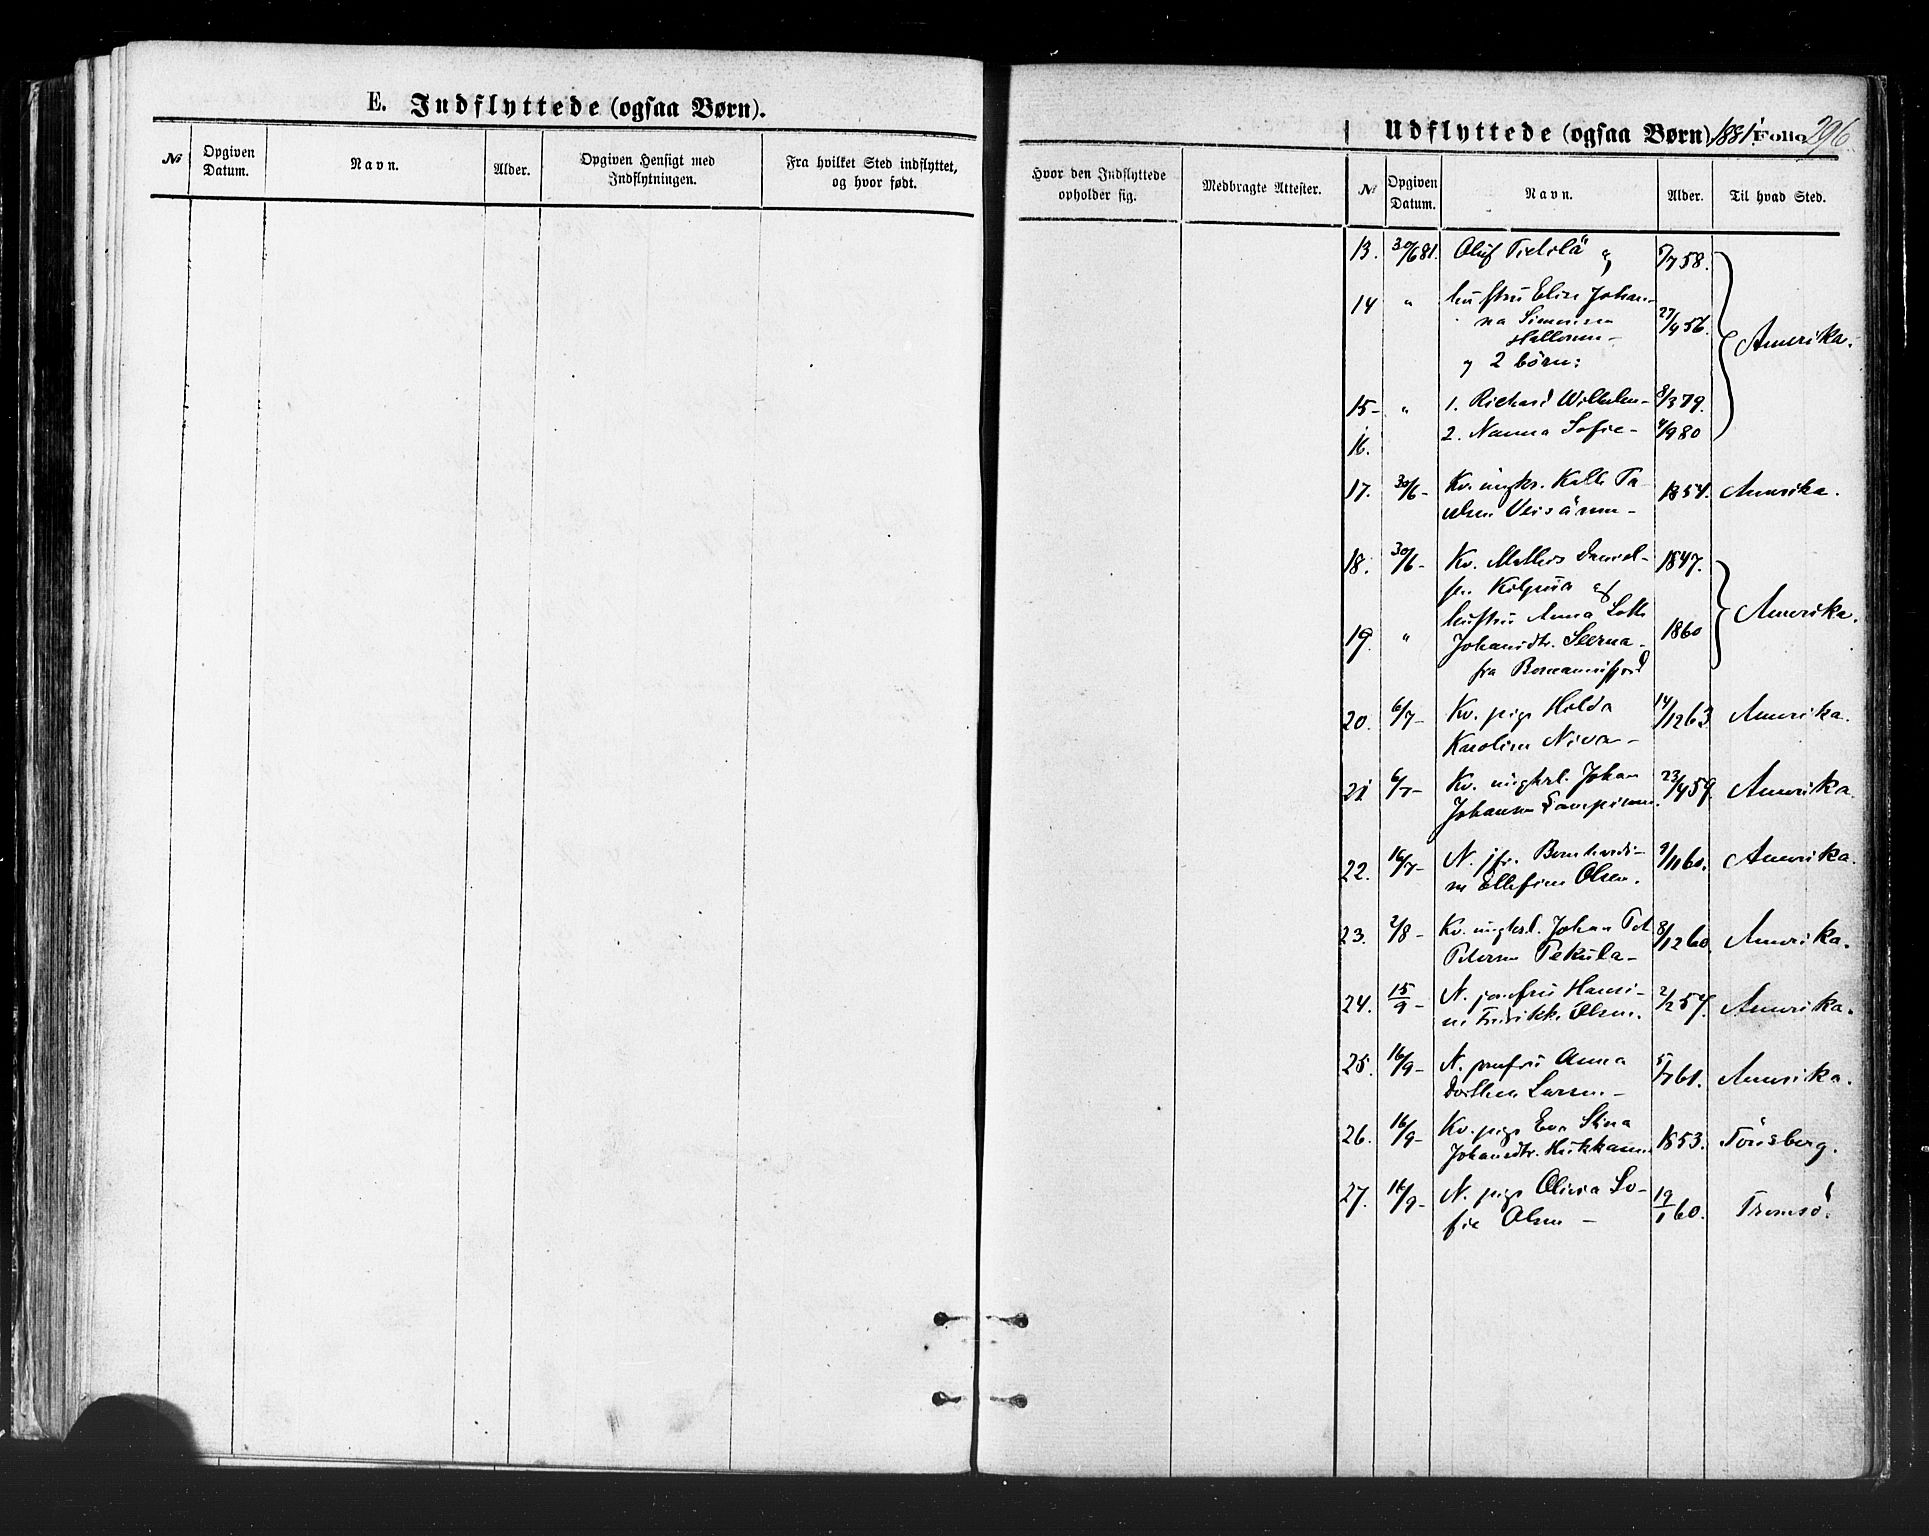 E. Indflyttede (ogsaa Børn).
№ Opgiven Datum. Navn. Alder. Opgiven Hensigt med Indflytningen. Fra hvilket Sted indflyttet, og hvor født.
Udflyttede (ogsaa Børn) 1881. Folio 296.
Hvor den Indflyttede opholder sig. Medbragte Attester. № Opgiven Datum. Navn. Alder. Til hvad Sted.
13. 30/6 81. Oluf 5/7 58.
14 " hustru Elise Johan-
na Simonsen 27/4 56. Amerika.
2 børn:
15 - " 1. Richard Wilhelm - 8/3 79.
16. 2. Nanna Sofie - 4/9 80
17. 30/6 - Kv. ungkr. Kalle 1854. Amerika.
18. 30/6 - Kv. Mathis Daniel- 1847.
19. " hustru Anna Lotte Amerika.
Johansdtr. 1860
fra
20. 6/7 - Kv. pige Hilda 14/12 63 Amerika.
Karoline Niva -
21 6/7 - Kv. ungkrl. Johan 23/4 59. Amerika.
Johansen
22. 16/7 - N. jfr. Bernhardi- 9/11 60. Amerika.
ne Ellefine Olsen.
23. 2/8 - Kv. ungkrl. Johan Pet. 8/12 60. Amerika.
Petersen Pekula -
24. 15/9 - N. jomfru Hansi- 2/2 57. Amerika.
ne Fredrikke Olsen.
25. 16/9 - N. jomfru Anna 5/7 61. Amerika.
Dorthea Larsen. -
26. 16/9 - Kv. pige Eva Stina
Johansdtr. Hukkanen 1853. Tönsberg.
27. 16/9 - N. pige Olivia So- 19/1 60. Tromsö.
fie Olsen -